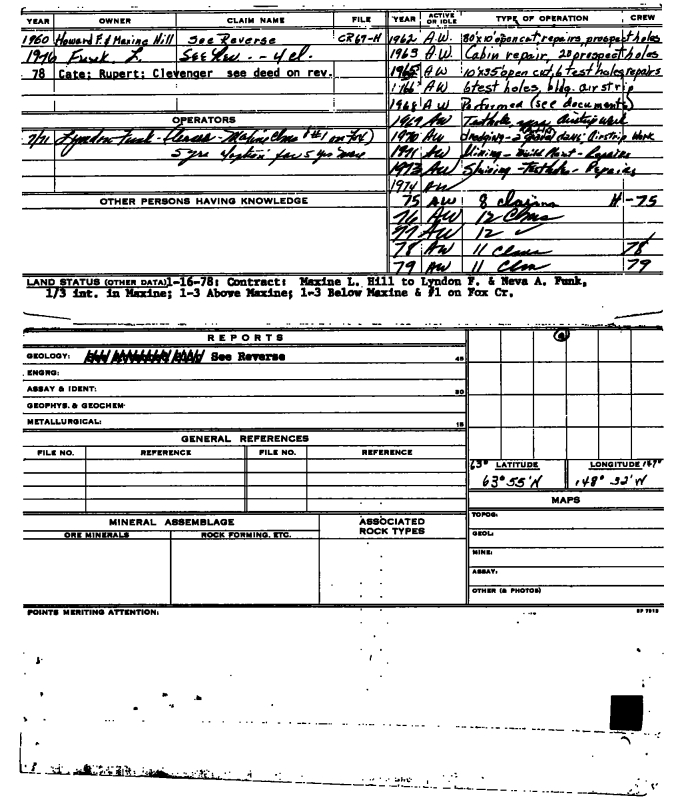 YEAR OWNER CLAIM NAME FILE YEAR ACTIVE OR IDLE TYPE OF OPERATION CREW
1960 Howard F. & Maxine Hill See Reverse CR67-H 1962 A.W. 80x10 open cut, repairs, prospect holes
1976 Funk L. See Rev. - 4 cl. 1963 A.W. Cabin repair, 20 prospect holes
78 Cate; Rupert; Clevenger see deed on rev. 1965 AW 10x35 open cut, 6 test holes repairs
AW 6 test holes, bldg. airstrip
1968 AW Performed (see documents)
OPERATORS 1969 AW airstrip work
7/71 Lyndon Funk - #1 on Fox) 1970 AW dredging - 2 Airstrip Work
5 yrs option for 5 yrs more 1971 AW Mining - Build Plant - Repairs
1973 AW - Testhole - Repairs
1974 AW
OTHER PERSONS HAVING KNOWLEDGE 75 AW 8 claims H -75
76 AW 12 Clms
77 AW 12 ✓
78 AW 11 Claims 78
79 AW 11 Clm 79
LAND STATUS (OTHER DATA) 1-16-78: Contract: Maxine L. Hill to Lyndon F. & Neva A. Funk,
1/3 int. in Maxine; 1-3 Above Maxine; 1-3 Below Maxine & #1 on Fox Cr.
REPORTS
GEOLOGY: See Reverse 45
ENGRG:
ASSAY & IDENT: 30
GEOPHYS. & GEOCHEM.
METALLURGICAL: 15
GENERAL REFERENCES
FILE NO. REFERENCE FILE NO. REFERENCE
63° LATITUDE LONGITUDE 147°
63° 55' N 148° 32' W
MAPS
MINERAL ASSEMBLAGE ASSOCIATED ROCK TYPES
ORE MINERALS ROCK FORMING, ETC.
TOPOG:
GEOL:
MINE:
ASSAY:
OTHER (& PHOTOS)
POINTS MERITING ATTENTION: